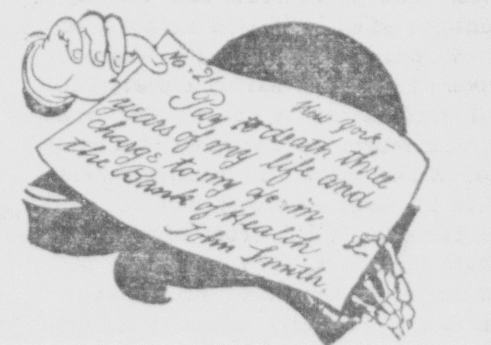 No. 21
New York -
Pay to death three
years of my life and
charge to my a/c in
the Bank of Health
John Smith.